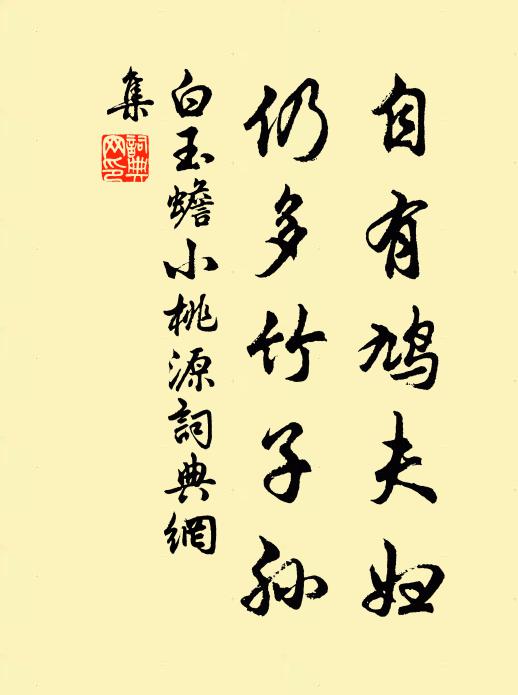 自有鸠夫妇
仍多竹子孙
白玉蟾小桃源詞典網
集
詞典網印